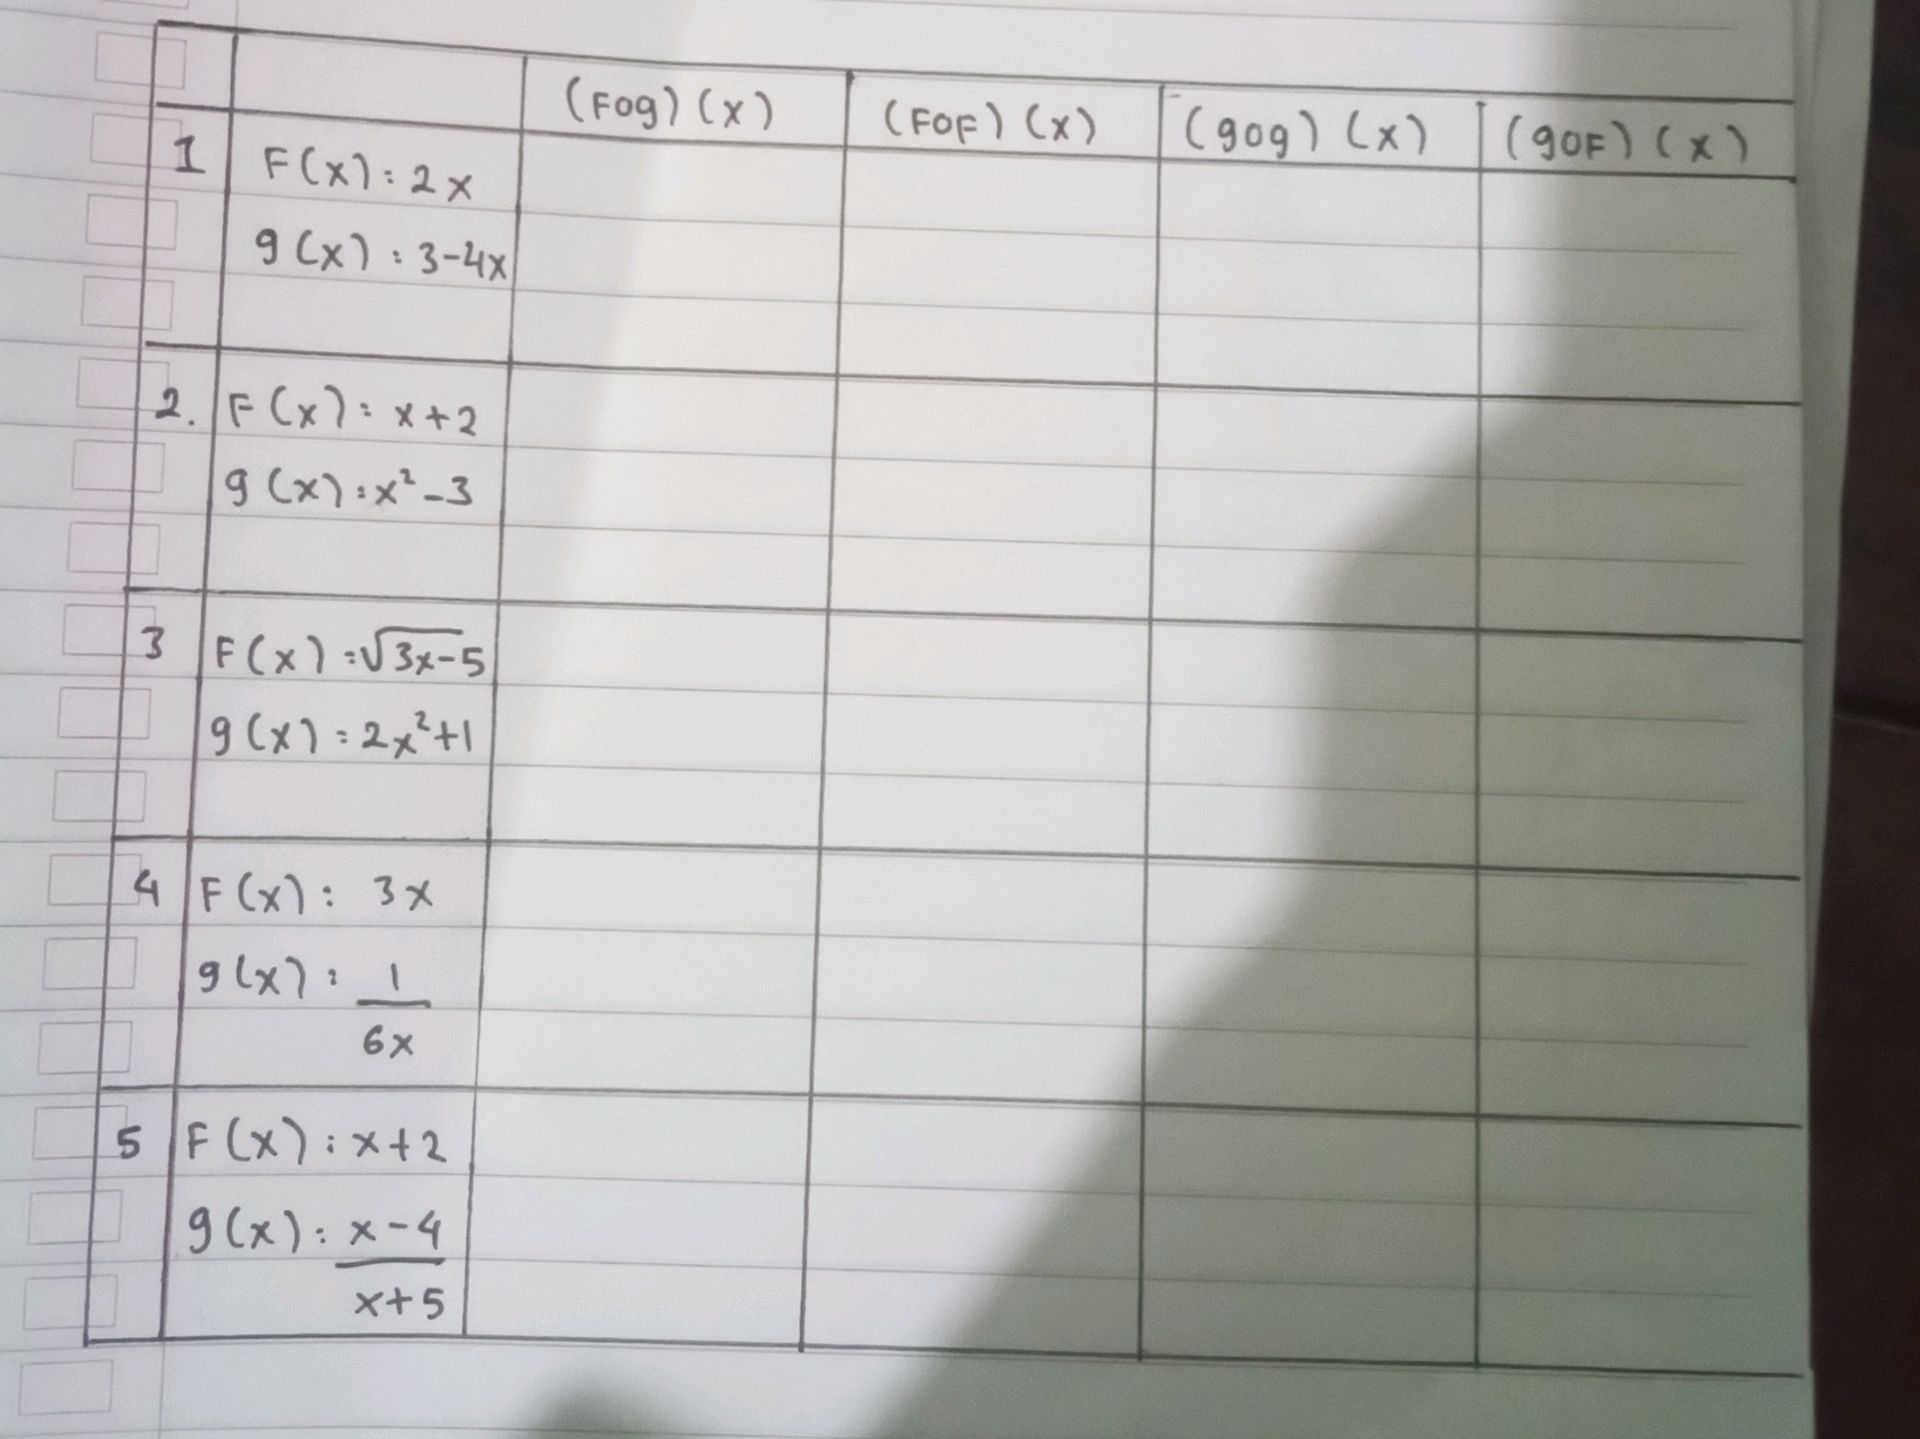 (FOg) (x) (FOF) (x) (gog) (x) (gOF) (x)
1 F(x) : 2x
g(x) : 3-4x
2. F(x) : x+2
g(x) : x²-3
3 F(x) = √3x-5
g(x) = 2x²+1
4 F(x) : 3x
g(x) : 1
6x
5 F(x) : x+2
g(x) : x-4
x+5